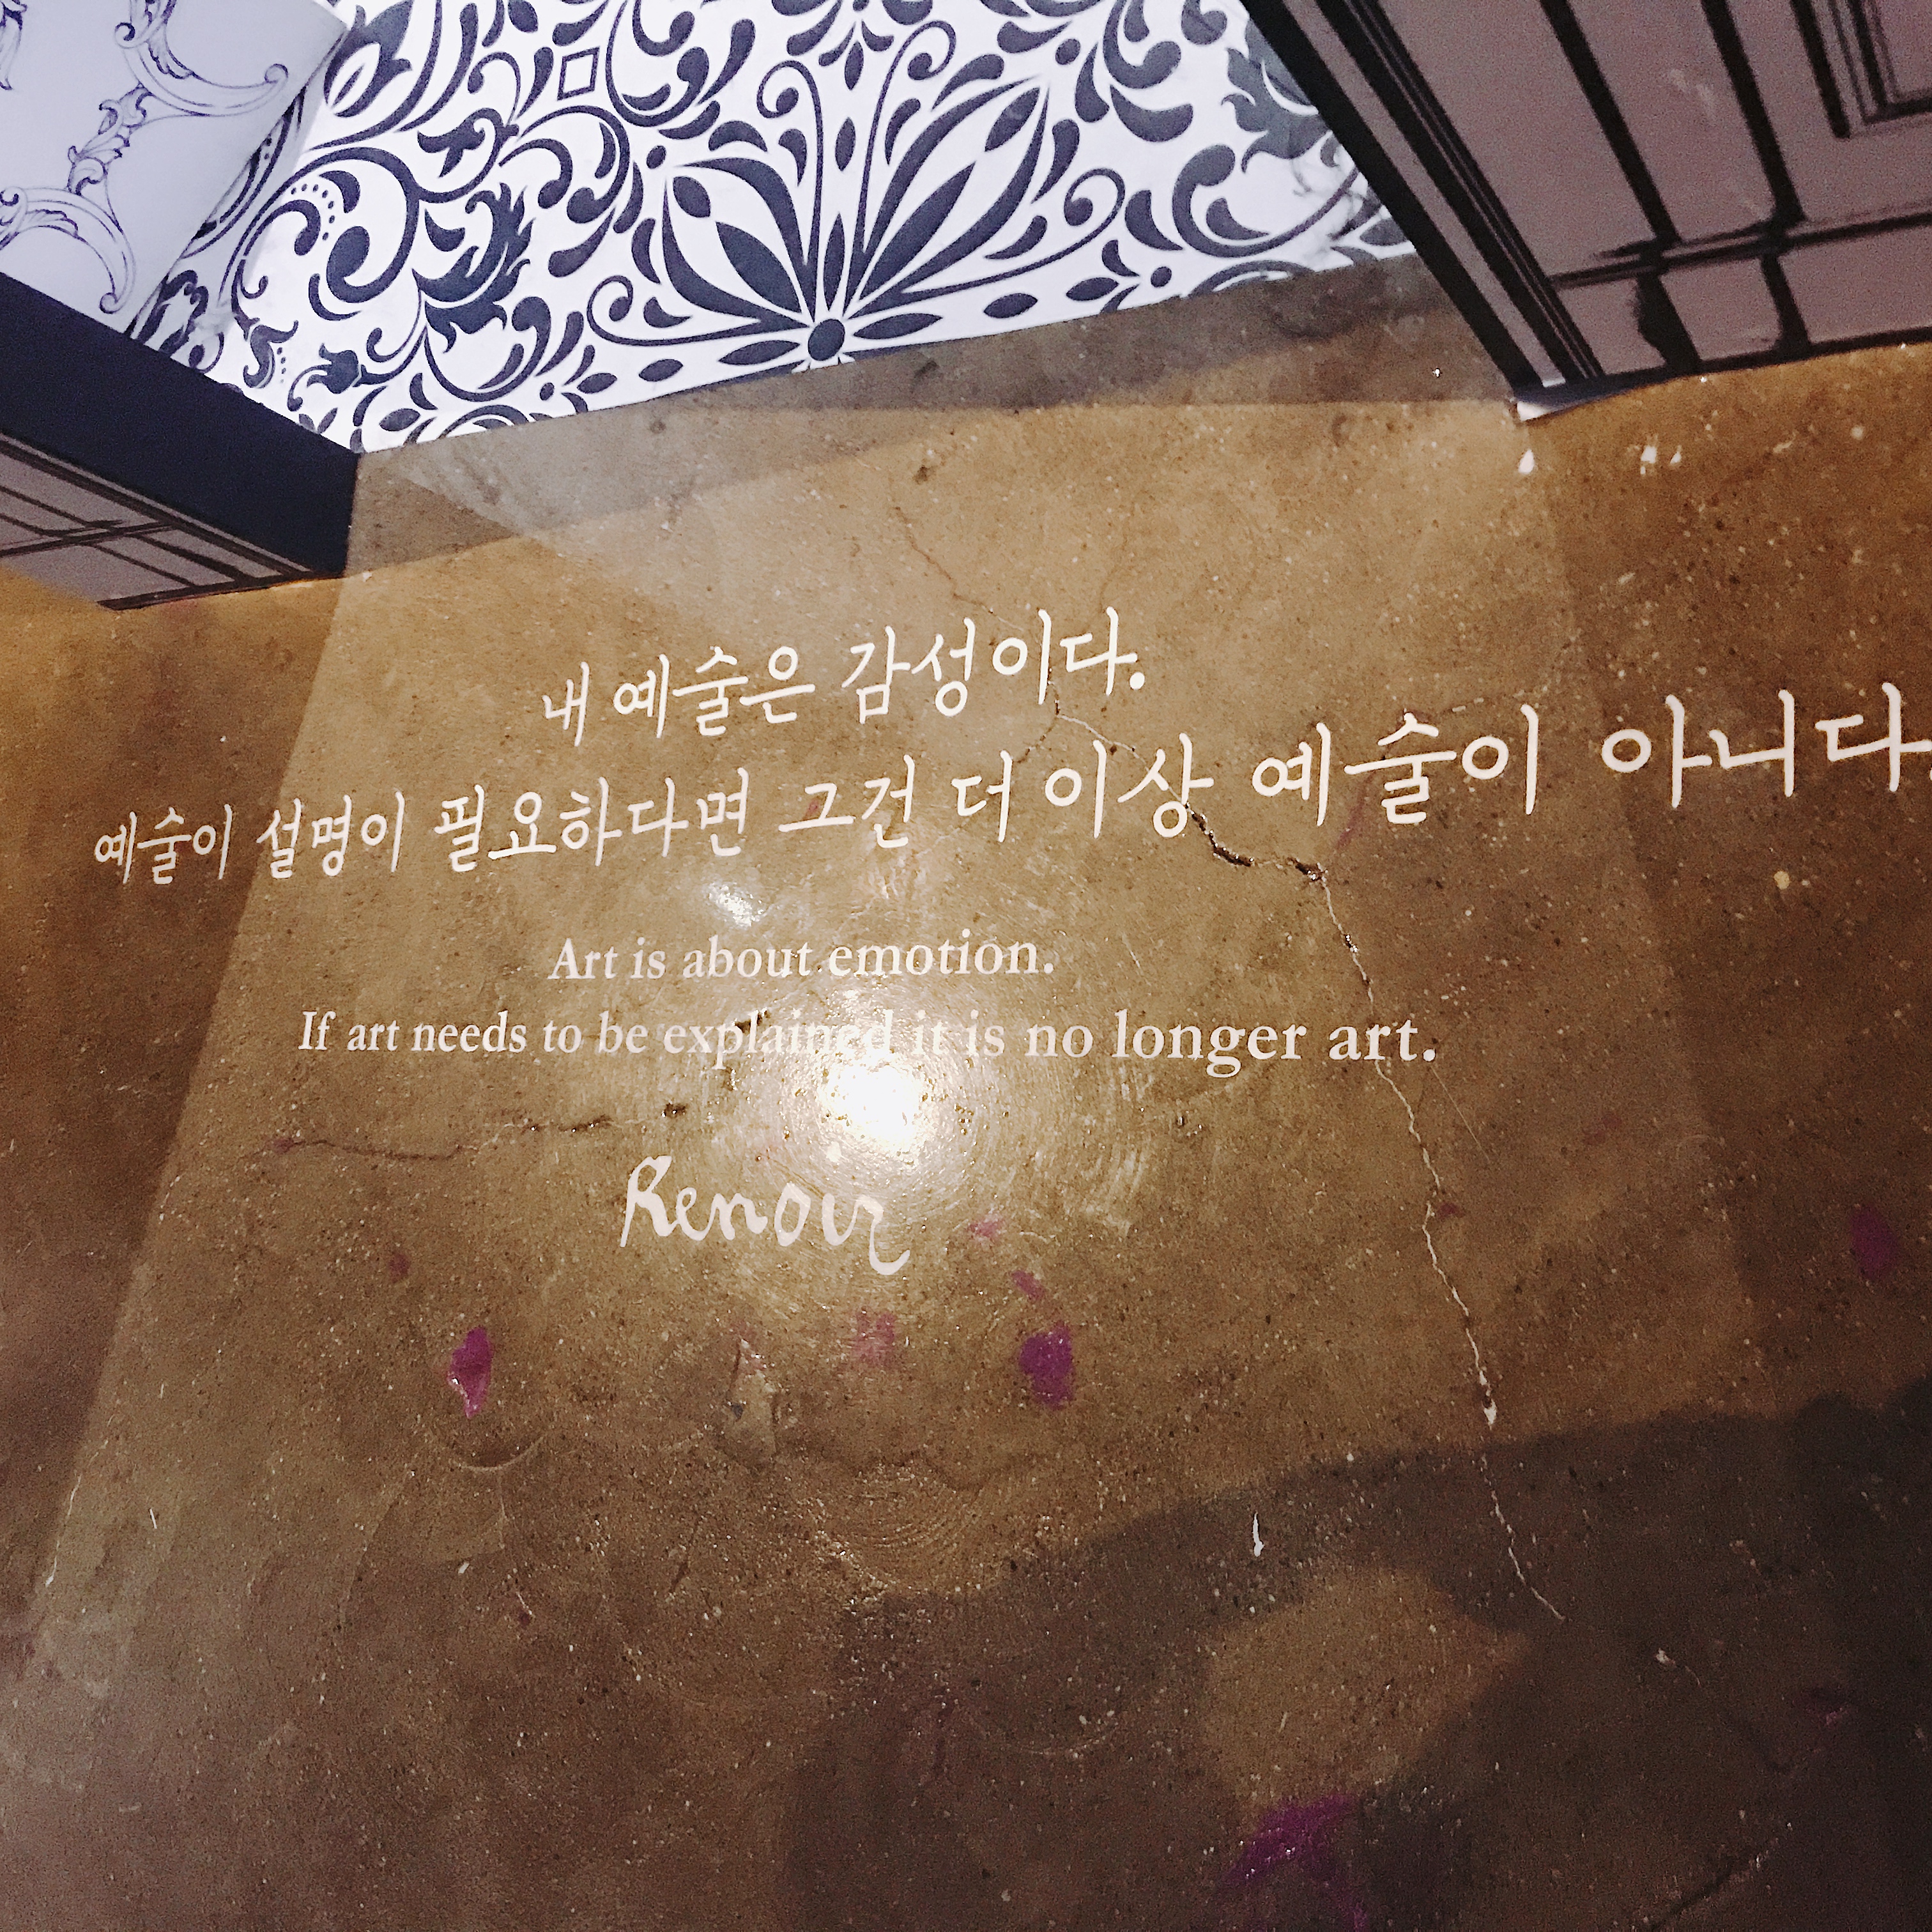 내 예술은 감성이다.
예술이 설명이 필요하다면 그건 더 이상 예술이 아니다.
Art is about emotion.
If art needs to be explained it is no longer art.
Renoir